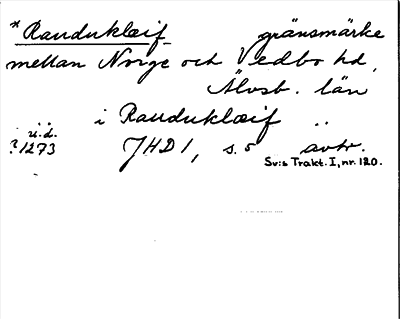 *Rauduklæif gränsmärke
mellan Norge och Vedbo hd,
Älvsb. län
i Rauduklæif ..
u.d.
?1273 JHD 1, s. 5 avtr.
Sv:s Trakt. I, nr. 120.